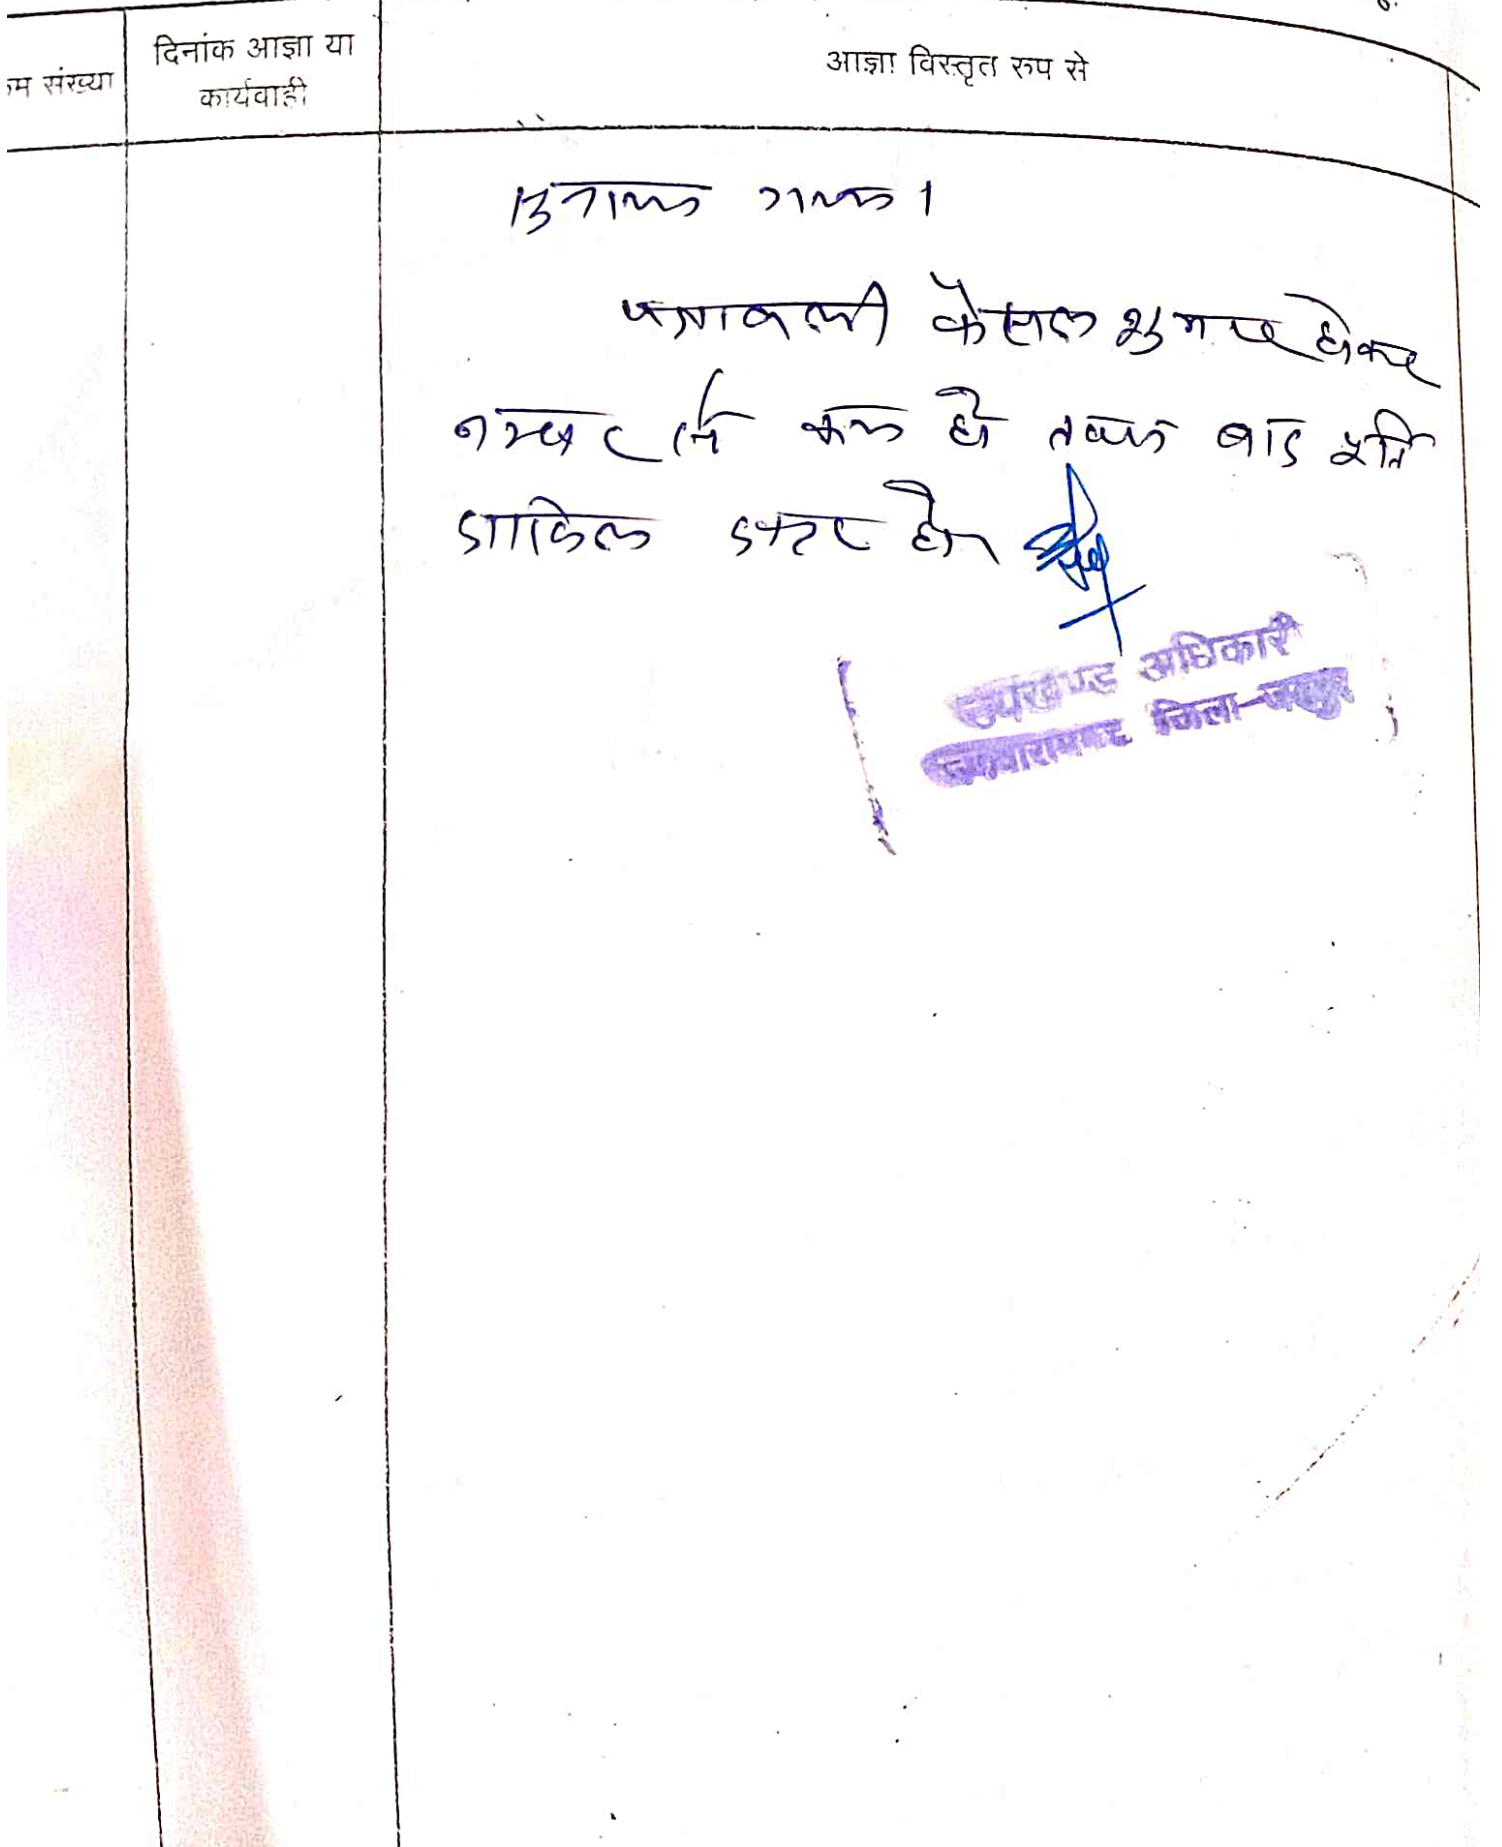 क्रम संख्या
दिनांक आज्ञा या
कार्यवाही
आज्ञा विस्तृत रुप से
सुनाया गया।
पत्रावली फैसल शुमार होकर
नम्बर से कम हो बाद पूर्ति
दाखिल दफ्तर हो
उपखण्ड अधिकारी
जमवारामगढ जिला-जयपुर